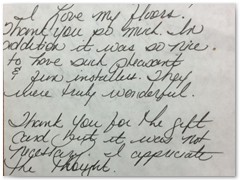 I Love my floors!
Thank you so much. In
addition it was so nice
to have such pleasant
& fun installers. They
were truly wonderful.
Thank you for the gift
card (But it was not
necessary. I appreciate
the thought.